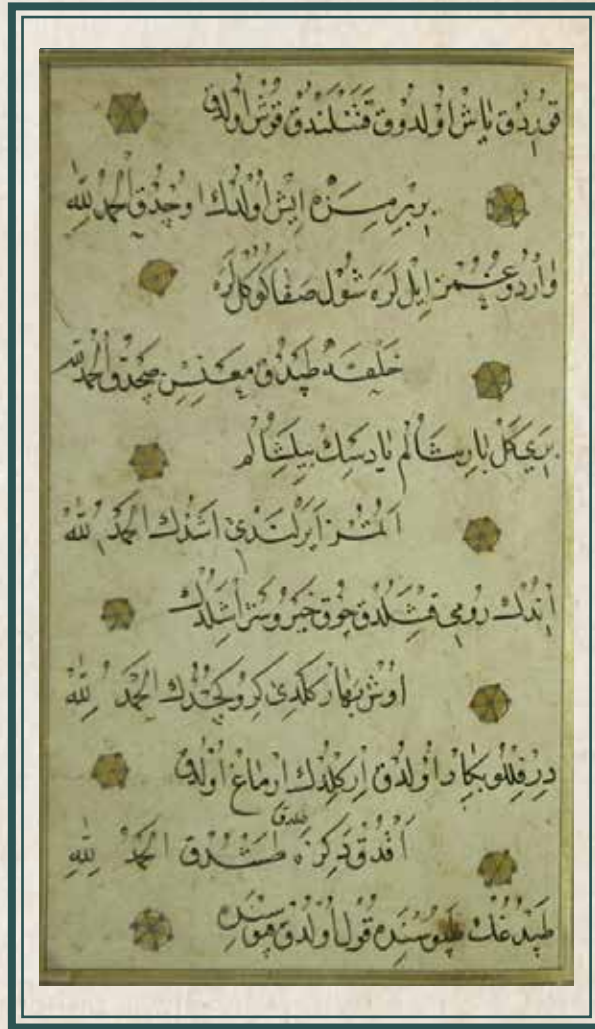 قوریدق یاش اولدوق قنتلندق قوش اولدق
بربرمزه ایش اولدك اوچدق الحمد لله
واردوغمز ایل لره شول صفا کوکل لره
خلقه طپدق معنسن صچدق الحمد لله
بری کل بارشالم یادسك بیلشالم
اتمز ایرلندی اشدك الحمد لله
اندك رومی قشلدق چوق خیر و شر اشلدك
اوش بهار کلدی کرو کچدك الحمد لله
درلدو بکار اولدق ارکلدك ارماغ اولدق
اقدق دکزه طلدق طشدق الحمد لله
طپدغك طپوسنده قول اولدق قپوسنده